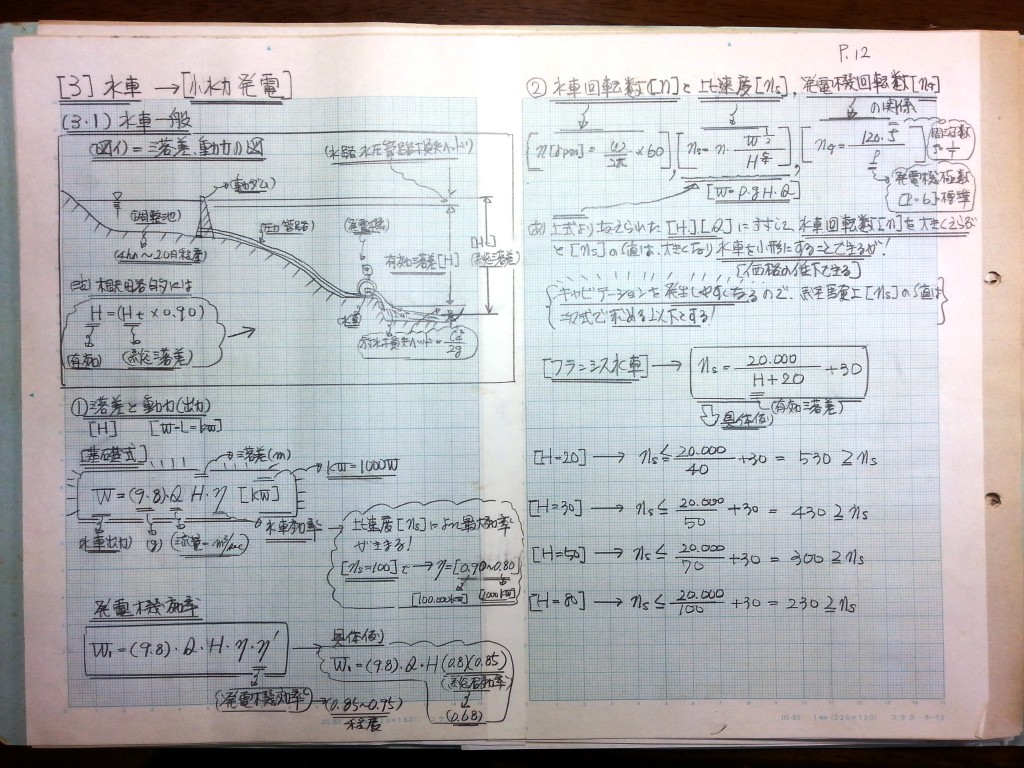 P.12
[3] 水車 → [小水力発電]
(3・1) 水車一般
(図イ) = 落差、動力の図
(水路、水圧管路不損失ヘッド)
(動ダム)
(調整池)
(圧力管路)
(発電機)
有効落差[H]
(総落差)
(水車)
H=(Ht×0.90)
(有効) (総落差)
① 落差と動力(出力)
[H] [W-L=kw]
[基礎式]
落差(m)
kw=1000W
W=(9.8)・Q H・η [kw]
水車出力 (g) (流量-m³/sec)
水車効率
比速度[ns]によって最大効率
がきまる!
[ns=100]で→η=[0.90~0.80]
[100.000kw] [1000kw]
発電機効率
W₁=(9.8)・Q・H・η・η'
(発電機効率) →(0.85~0.95)
程度
具体例)
W₁=(9.8)・Q・H(0.8)(0.85)
(総合効率)
(0.68)
② 水車回転数[n]と比速度[ns]、発電機回転数[n4]
の関係
[n[rpm]=ω/2π×60], [ns=n・W^½/H^5/4], [n4=120.f/P]
周波数
[W=ρ.gH.Q]
発電機極数
[P=6]標準
(あ) 上式より与えられた[H][Q]にたいして、水車回転数[n]を大きくえらぶ
と[ns]の値は、大きくなり水車を小形にすることできるが!
[価格の低下できる]
キャビテーションを発生しやすくなるので、
[ns]の値は
次式で求める以下とする!
[フランシス水車] → ns=20.000/H+20 +30
(有効落差)
具体例)
[H=20] → ns≦20.000/40 +30 = 530 ≧ns
[H=30] → ns≦20.000/50 +30 = 430 ≧ns
[H=50] → ns≦20.000/70 +30 = 300 ≧ns
[H=80] → ns≦20.000/100 +30 = 230 ≧ns